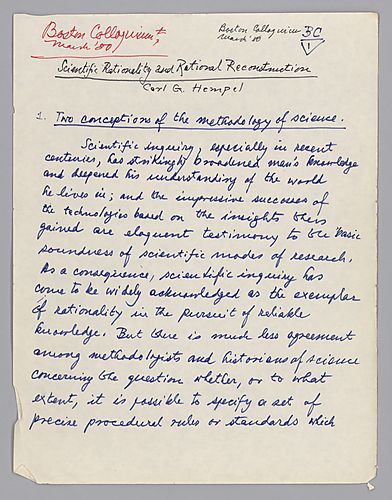 Boston Colloquium,
March '80
Boston Colloquium BC
March '80 1
Scientific Rationality and Rational Reconstruction
Carl G. Hempel
1. Two conceptions of the methodology of science.
Scientific inquiry, especially in recent
centuries, has strikingly broadened man's knowledge
and deepened his understanding of the world
he lives in; and the impressive successes of
the technologies based on the insights thus
gained are eloquent testimony to the basic
soundness of scientific modes of research.
As a consequence, scientific inquiry has
come to be widely acknowledged as the exemplar
of rationality in the pursuit of reliable
knowledge. But there is much less agreement
among methodologists and historians of science
concerning the question whether, or to what
extent, it is possible to specify a set of
precise procedural rules or standards which